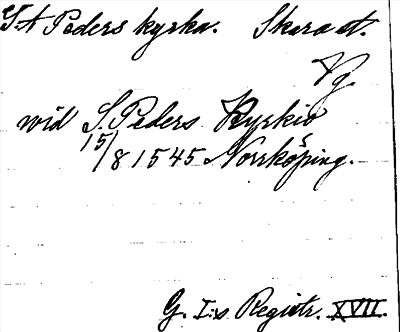 S:t Peders kyrka. Skara st.
Vg.
wid S. Peders Kyrkio
15/8 1545 Norrköping.
G. I:s Registr. XVII.